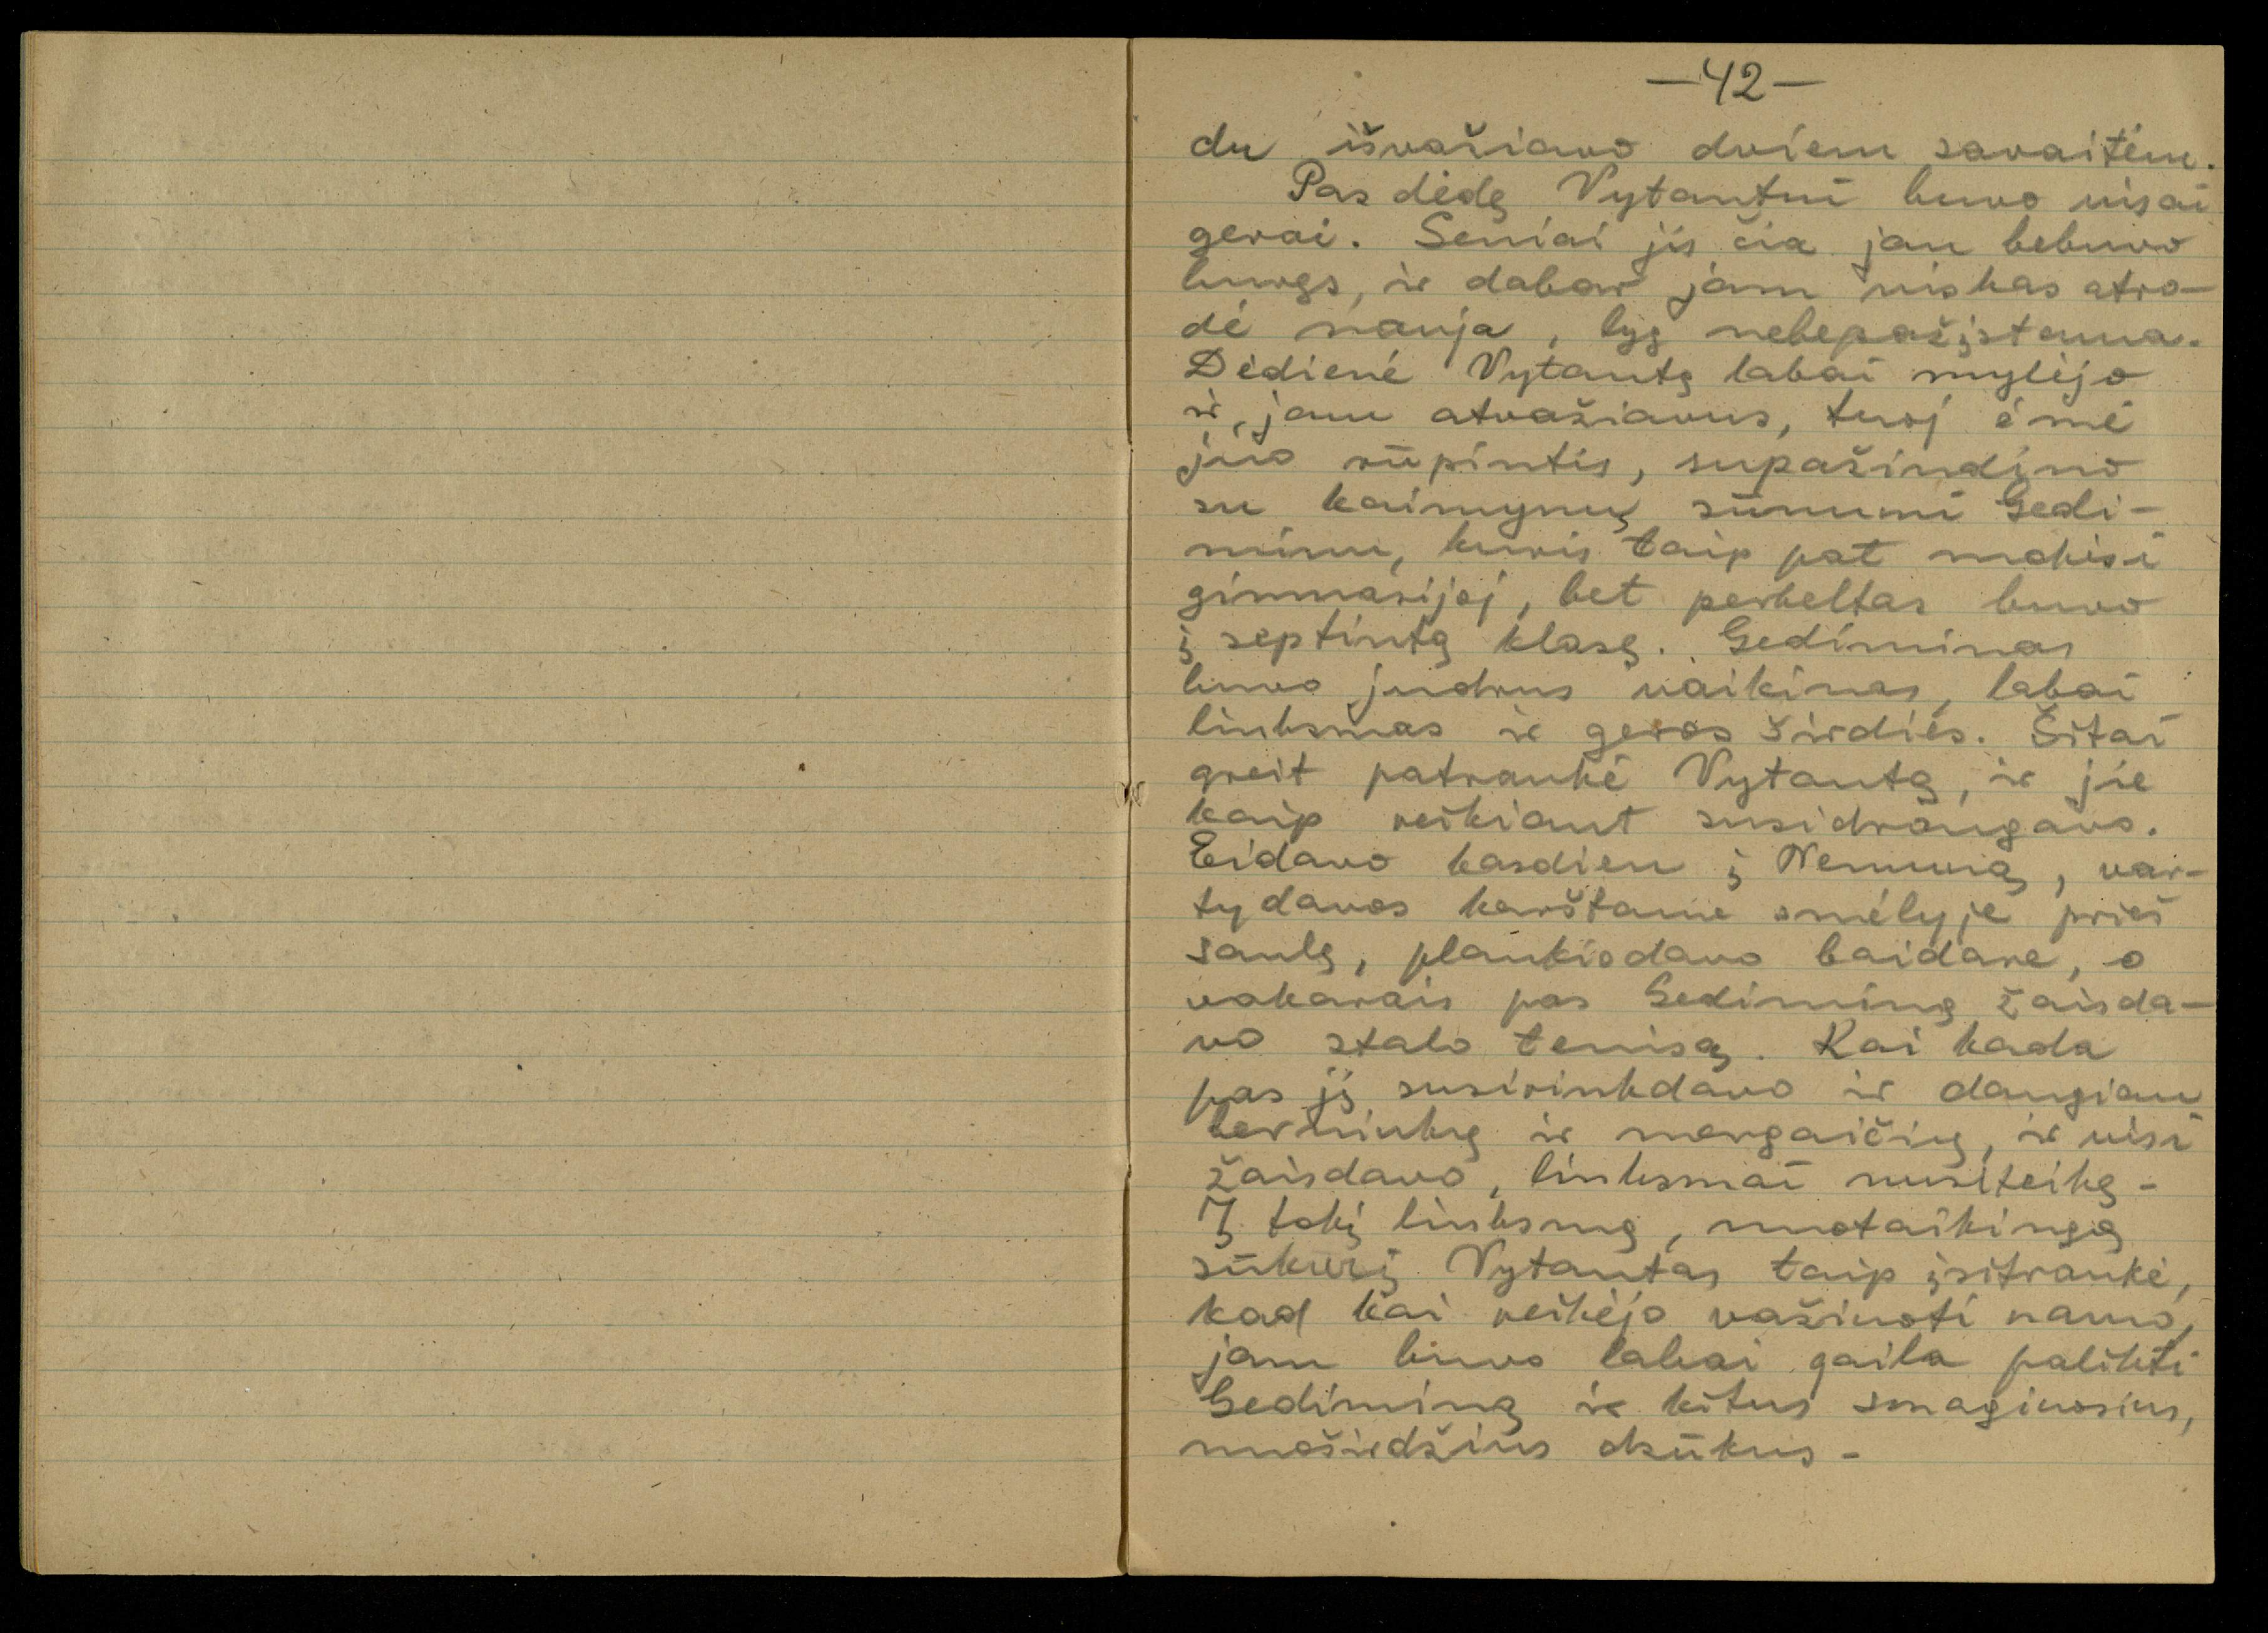 —42—
du išvažiavo dviem savaitėm.
Pas dėdę Vytautui buvo visai
gerai. Seniai jis čia jau bebuvo
buvęs, ir dabar jam viskas atro-
dė nauja, lyg nebepažįstama.
Dėdienė Vytautą labai mylėjo
ir, jam atvažiavus, tuoj ėmė
juo rūpintis, supažindino
su kaimynų sūnumi Gedi-
minu, kuris taip pat mokėsi
gimnazijoj, bet perkeltas buvo
į septintą klasę. Gediminas
buvo judrus vaikinas, labai
linksmas ir geros širdies. Šitai
greit patraukė Vytautą, ir jie
kaip reikiant susidraugavo.
Eidavo kasdien į Nemuną, var-
tydavos karštame smėlyje prieš
saulę, plaukiodavo baidare, o
vakarais pas Gediminą žaisda-
vo stalo tenisą. Kai kada
pas jį susirinkdavo ir daugiau
berniukų ir mergaičių, ir visi
žaisdavo, linksmai nusiteikę.
Į tokį linksmą, nuotaikingą
sūkurį Vytautas taip įsitraukė,
kad kai reikėjo važiuoti namo,
jam buvo labai gaila palikti
Gediminą ir kitus smagiuosius,
nuoširdžius dzūkus.